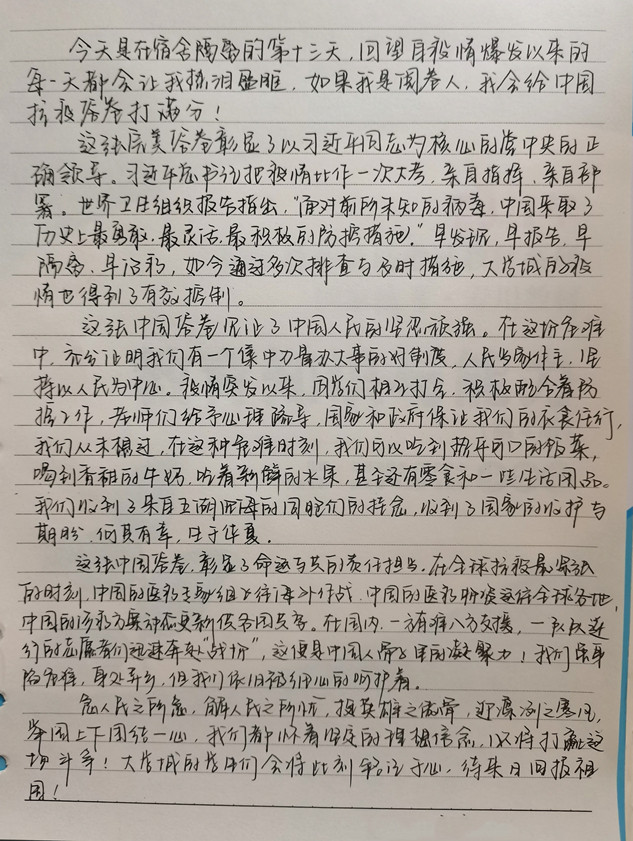 今天是在宿舍隔离的第十三天，回望自疫情爆发以来的
每一天都会让我热泪盈眶，如果我是阅卷人，我会给中国
抗疫答卷打满分！
这张完美答卷彰显了以习近平同志为核心的党中央的正
确领导。习近平总书记把疫情比作一次大考，亲自指挥、亲自部
署。世界卫生组织报告指出，"面对前所未知的病毒，中国采取了
历史上最勇敢、最灵活、最积极的防控措施。"早发现，早报告，早
隔离，早治疗，如今通过多次排查与及时措施，大学城的疫
情也得到了有效控制。
这张中国答卷见证了中国人民的坚忍顽强。在这场危难
中，充分证明我们有一个集中力量办大事的好制度，人民当家作主，坚
持以人民为中心。疫情突发以来，同学们相互打气，积极配合着防
控工作，老师们给予心理疏导，国家和政府保证我们的衣食住行，
我们从未想过，在这种危难时刻，我们可以吃到热乎可口的饭菜，
喝到香甜的牛奶，吃着新鲜的水果，甚至还有零食和一些生活用品。
我们收到了来自五湖四海的同胞们的挂念，收到了国家的呵护与
期盼，何其有幸，生于华夏。
这张中国答卷，彰显了命运与共的责任担当。在全球抗疫最紧张
的时刻，中国的医疗专家组奔往海外作战，中国的医疗物资运转全球各地，
中国的诊疗方案动态更新供各国参考。在国内，一方有难八方支援，一队队逆
行的志愿者们迅速奔赴"战场"，这便是中国人骨子里的凝聚力！我们虽身
陷危难，身处异乡，但我们依旧被细心的呵护着。
急人民之所急，解人民之所忧，搜英雄之傲骨，迎凛冽之寒风，
举国上下团结一心，我们都怀着坚定的理想信念，必将打赢这
场斗争！大学城的学生们会将此刻铭记于心，待来日回报祖
国！